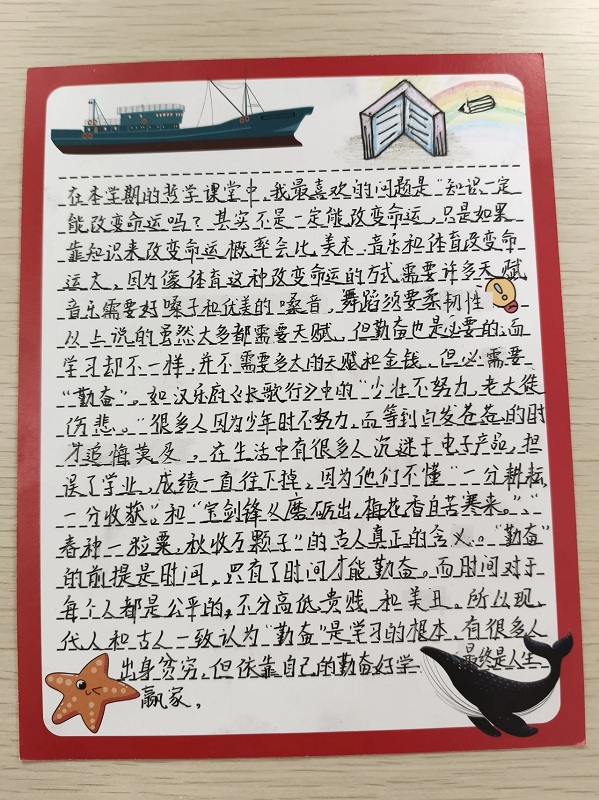 在本学期的哲学课堂中，我最喜欢的问题是“知识一定
能改变命运吗？其实不是一定能改变命运，只是如果
靠知识来改变命运概率会比美术、音乐和体育改变命
运大，因为像体育这种改变命运的方式需要许多天赋
音乐需要好嗓子和优美的嗓音，舞蹈须要柔韧性
以上说的虽然大多都需要天赋，但勤奋也是必要的，而
学习却不一样，并不需要多大的天赋和金钱，但必需要
“勤奋”。如汉乐府《长歌行》中的“少壮不努力，老大徒
伤悲。”很多人因为少年时不努力，而等到白发苍苍的时
才追悔莫及。在生活中有很多人沉迷于电子产品，担
误了学业，成绩一直往下掉，因为他们不懂“一分耕耘，
一分收获”。和“宝剑锋从磨砺出，梅花香自苦寒来。”、“
春种一粒粟，秋收万颗子”的古人真正的含义。“勤奋”
的前提是时间，只有了时间才能勤奋。而时间对于
每个人都是公平的，不分高低贵贱和美丑。所以现
代人和古人一致认为“勤奋”是学习的根本，有很多人
出身贫穷，但依靠自己的勤奋好学 最终是人生
赢家。